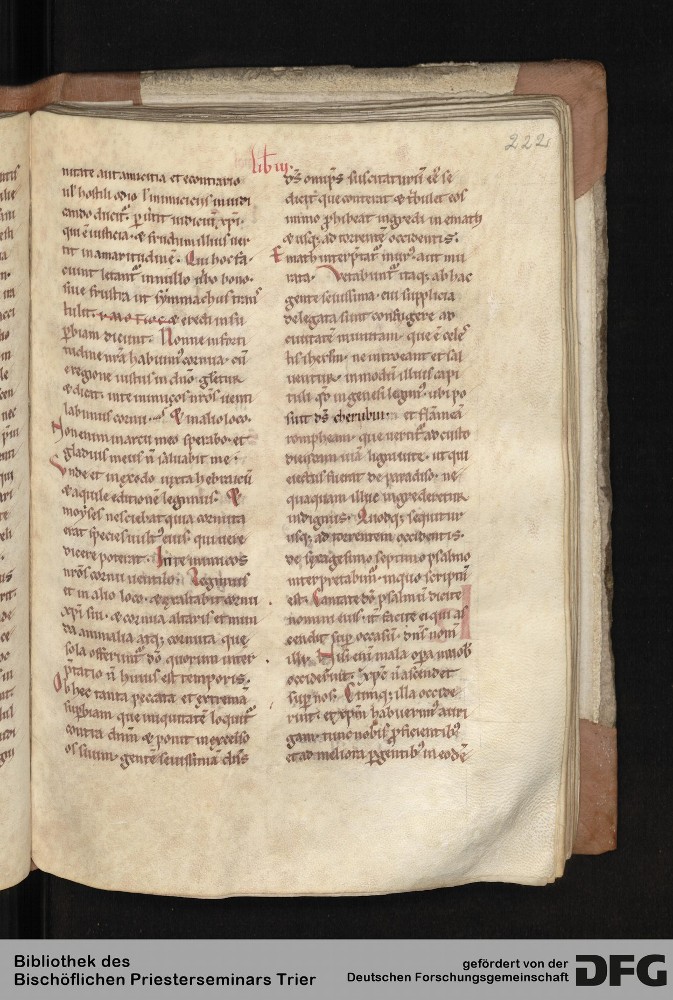 222
lib iii.
nitate aut amicitia et econtrario
ul' hostili odio l' inimicicus in iudi
cando ducit͛. ꝑ uertit iudiciū xp̄i.
qui ē iusticia. & fructum illius uer
tit in amaritudinē. Qui hoc fa
ciunt letant͛ in nullo uerbo bono.
siue frustra ut symmachus trans
tulit.
ꝑbiam dicunt. Nonne in forti
tudine nr̄a habuim͛ cornua. cū
e regione iustus in dn̄o glet͛ur
& dicat. in te inimicos nr̄os uenti
labimus cornu. & in alio loco.
Non enim in arcu meo sperabo. et
gladius meus n̄ saluabit me.
Unde et in exodo iuxta hebraicū
& aquile editionē legimus. Et
moyses nesciebat quia cornuta
erat species uult͛ eius. qui uere
dicere poterat. In te inimicos
nr̄os cornu uentilo. Legimus
et in alio loco. & exaltabit cornu
xp̄i sui. & cornua altaris et mun
da animalia atq; cornuta quę
sola offerunt͛ dō quorum inter
p̄tatio n̄ huius est temporis.
Ob hec tanta peccata et extremā
suꝑbiam. que iniquitatē loquit͛
contra dnm̄ & ponit in excelso
os suum. gentē seuissimā
d̄s omīps suscitaturū ēē se
dicit que conterat & t͛bulet eos
immo ꝓhibeat ingredi in emath
& usq; ad torrentē occidentis.
Emath interp̄tat͛
rata. Vetabunt͛ itaq; ab hac
gente seuissima. cui supplicia
delegata sunt confugere ad
ciuitatē munitam. que ē celes
tis iherlm̄. ne introeant et sal
uentur. in modū illius capi
tuli. qd̄ in genesi legim͛. ubi po
suit d̄s cherubin. et flāmeā
rompheam. que uertit͛ ad custo
diendam uiā ligni uite. ut qui
eiectus fuerat de paradiso. ne
quaquam illuc ingrederetur
indignus. Quodq; sequitur
usq; ad torrentem occidentis.
de sexagesimo septimo psalmo
interpretabim͛. in quo scriptū
est. Cantate dō psalmū dicite
nomini eius. it͛ facite ei qui as
cendit suꝑ occasū. dn̄s nom̄
illi. Nisi enim mala oꝑa in nob̄
occiderint. xp̄c n̄ ascendet
suꝑ nos. Cumq; illa occide
rint. et xp̄m habuerim͛ auri
gam. tunc nobis ꝓficientib͛
et ad meliora ꝑgentib͛ in eodē
Bibliothek des
Bischöflichen Priesterseminars Trier
gefördert von der
Deutschen Forschungsgemeinschaft
DFG